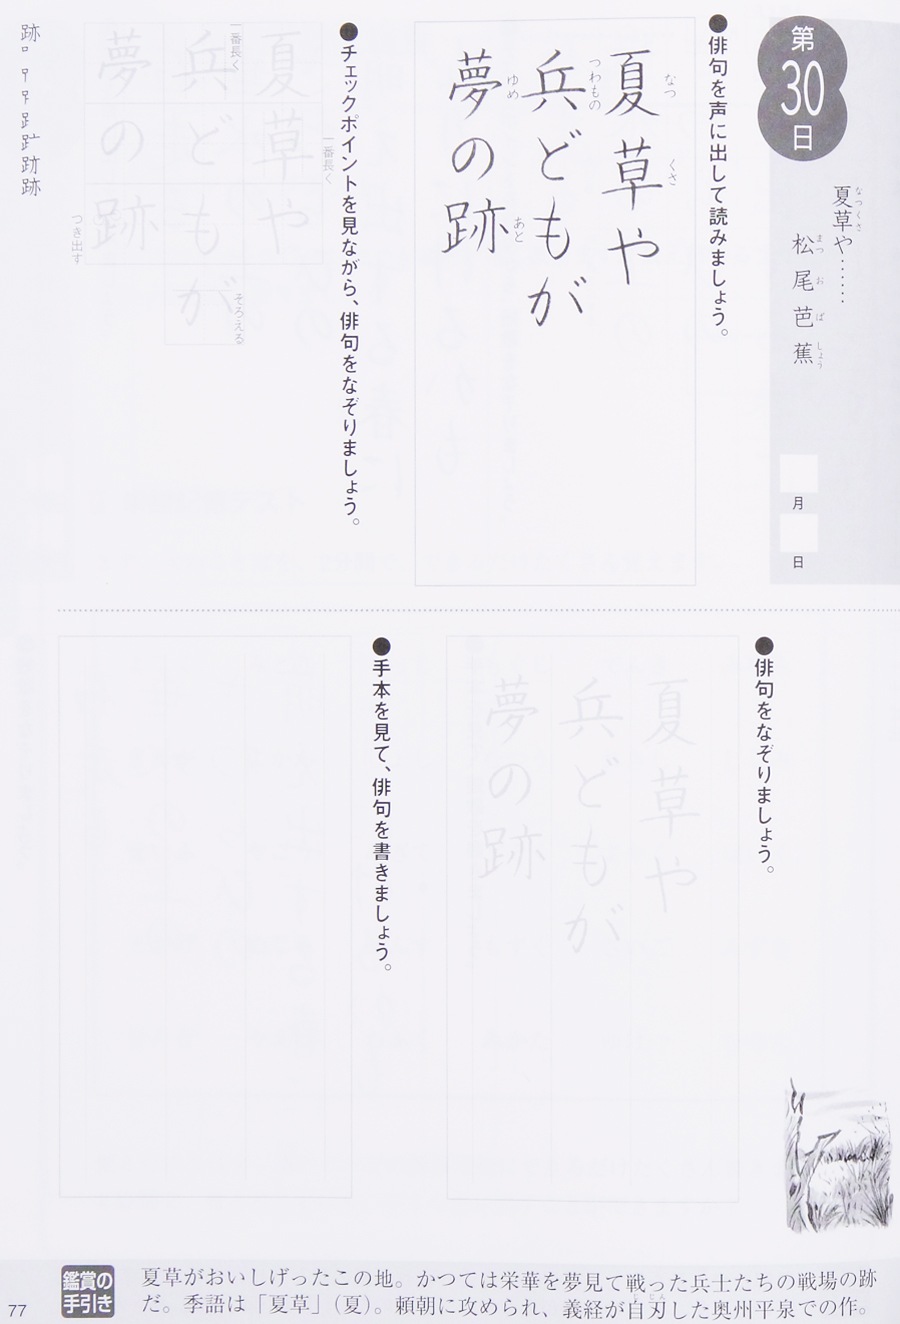 第30日
夏草や……
松尾芭蕉
なつくさ
まつおばしょう
月
日
●俳句を声に出して読みましょう。
夏草や
なつくさ
兵どもが
つわもの
夢の跡
ゆめ
あと
●チェックポイントを見ながら、俳句をなぞりましょう。
夏草や
一番長く
兵どもが
一番長く
そろえる
夢の跡
つき出す
跡
●俳句をなぞりましょう。
夏草や
兵どもが
夢の跡
●手本を見て、俳句を書きましょう。
鑑賞の手引き
夏草がおいしげったこの地。かつては栄華を夢見て戦った兵士たちの戦場の跡
だ。季語は「夏草」（夏）。頼朝に攻められ、義経が自刃した奥州平泉での作。
じじん
77